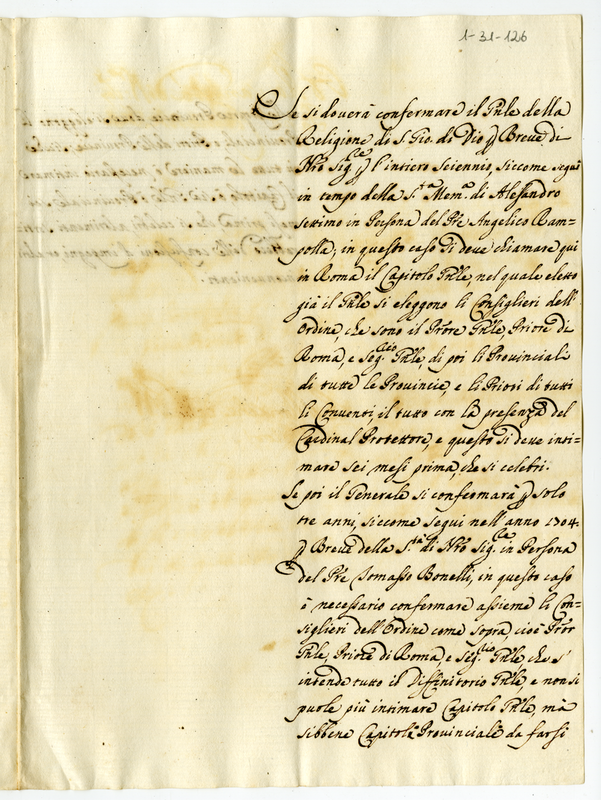 1-31-126
Se si doverà confermare il Gñle della
Religione di S. Gio: di Dio p Breve di
Nrõ Sig.re p l'intiero Sciennio, siccome seguì
in tempo della S.ta Mem.a di Alessandro
settimo in Persona del Pre Angelico Ram=
polla, in questo caso si deve chiamare qui
in Roma il Capitolo Gñle, nel quale eletto
già il Gñle si eleggono li Consiglieri dell'
Ordine, che sono il Prõre Gñle, Priore di
Roma, e Seg.rio Gñle, di poi li Provinciali
di tutte le Provincie, e li Priori di tutti
li Conventi, il tutto con la presenza del
Cardinal Protettore, e questo si deve inti=
mare sei mesi prima, che si celebri.
Se poi il Generale si confermarà p solo
tre anni, siccome seguì nell'anno 1704.
p Breve della S.tà di Nrõ Sig.re in Persona
del Pre Tomasso Bonelli, in questo caso
è necessario confermare assieme li Con=
siglieri dell'Ordine come sopra, cioè Prõr
Gñle, Priore di Roma, e Seg.rio Gñle, che s'
intende tutto il Diffinitorio Gñle, e non si
puole più intimare Capitolo Gñle, mà
sibbene Capitoli Provinciali da farsi